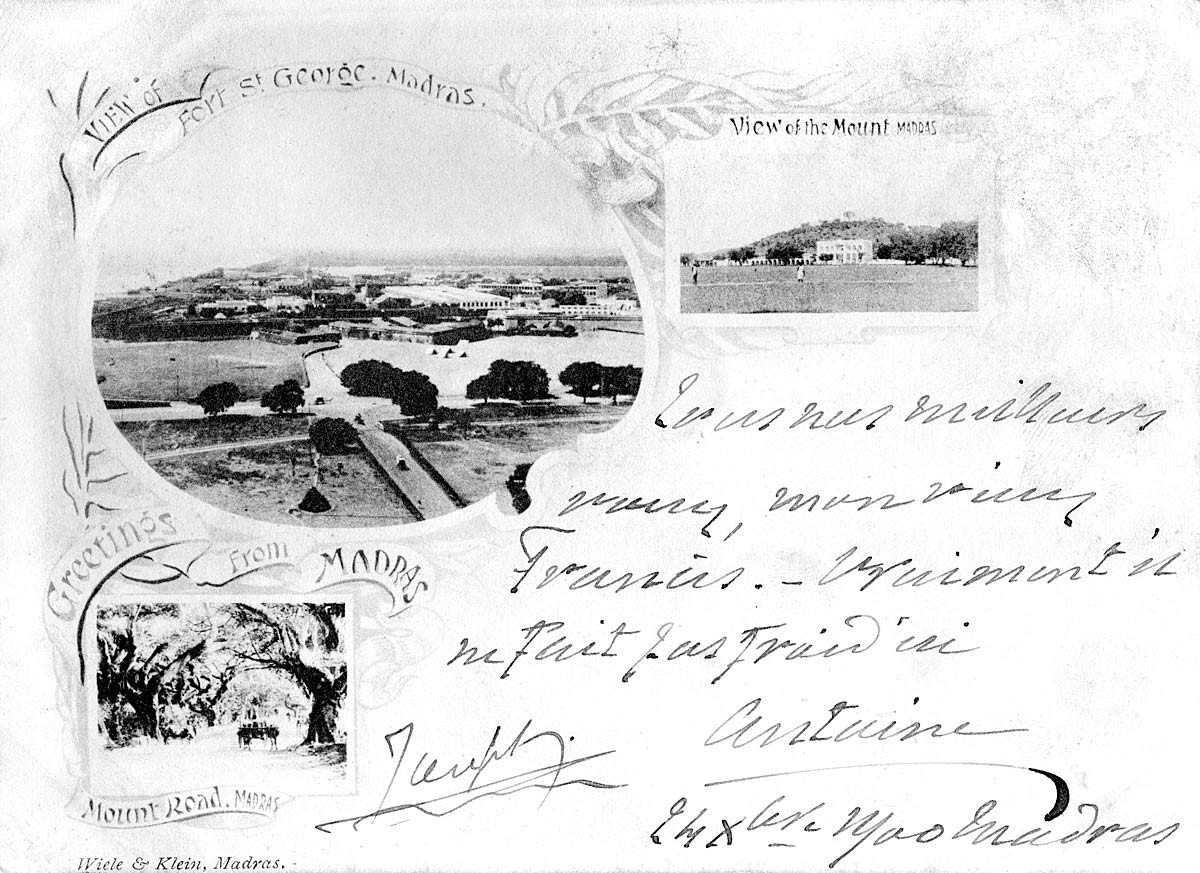 View of Fort St George. Madras.
View of the Mount MADRAS
Tous nos meilleurs
vœux, mon vieux
Francis. – Vraiment il
ne fait pas froid ici
Antoine
Joseph
Xbre 1900 Madras
Greetings from MADRAS
Mount Road. MADRAS
Wiele & Klein, Madras. -